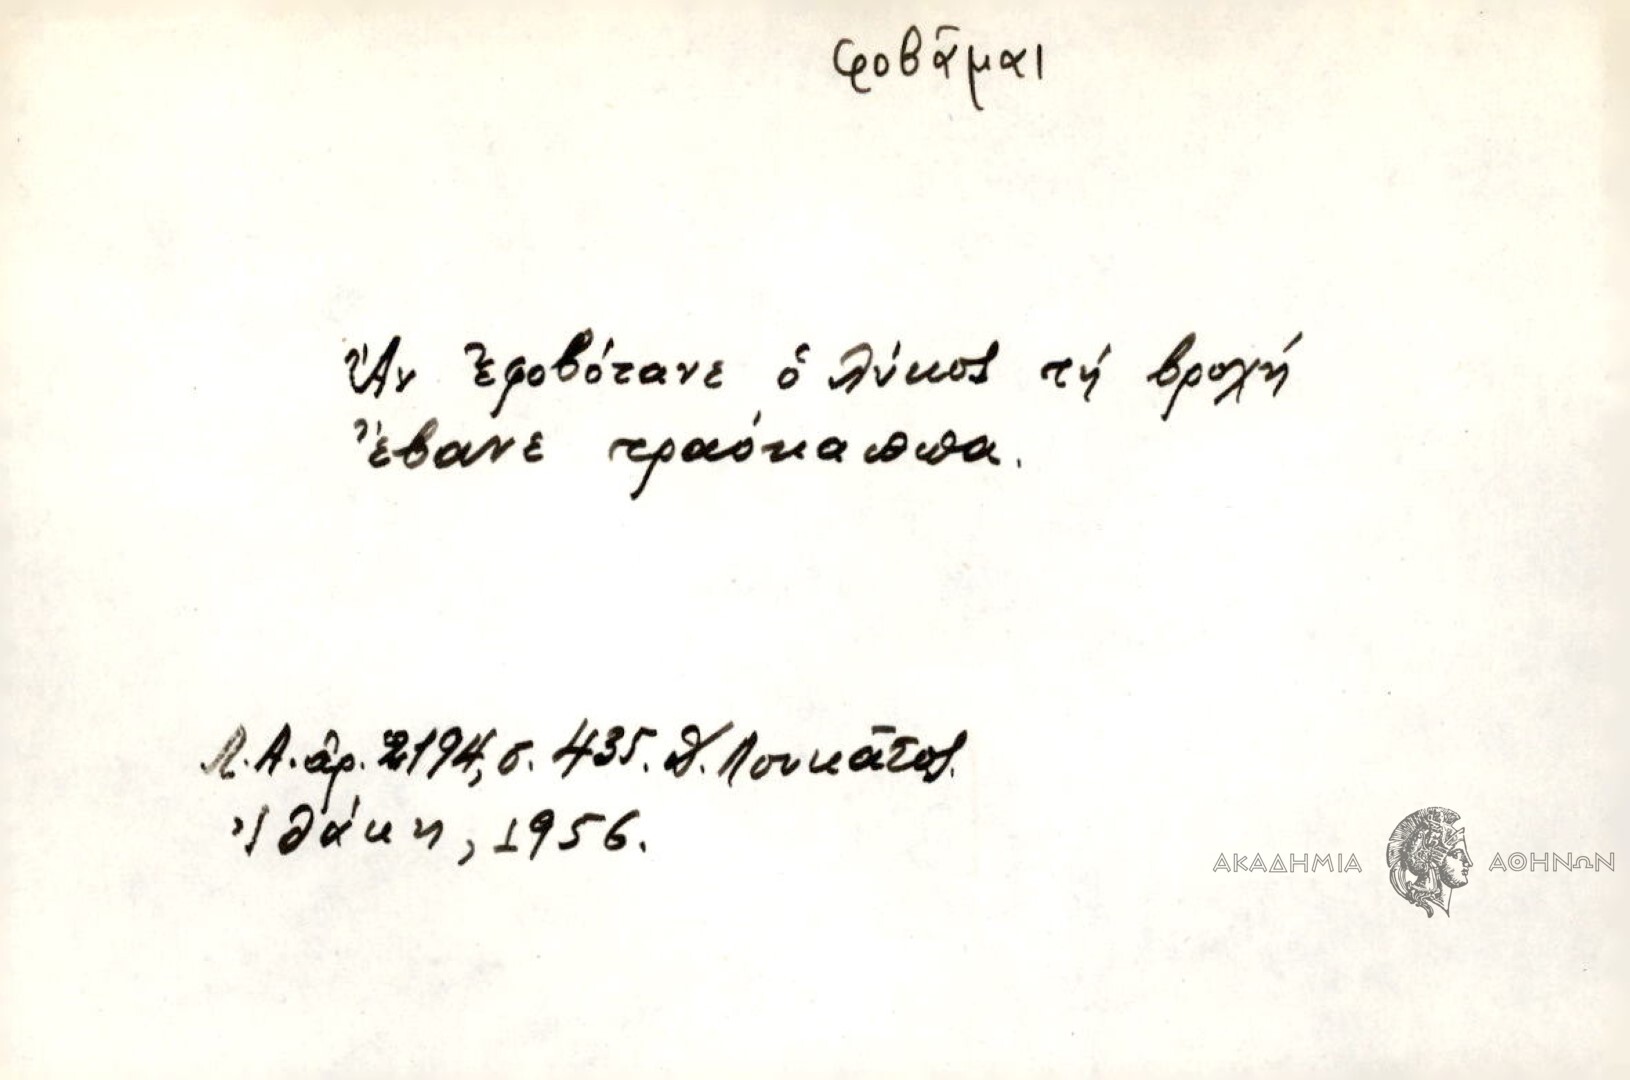 φοβᾶμαι
Ἄν ἐφοβότανε ὁ λύκος τή βροχή
ἔβανε τραόκαππα.
Λ.Α. ἀρ. 2194, σ. 435. Δ. Λουκᾶτος.
Ἰθάκη, 1956.
ΑΚΑΔΗΜΙΑ ΑΘΗΝΩΝ